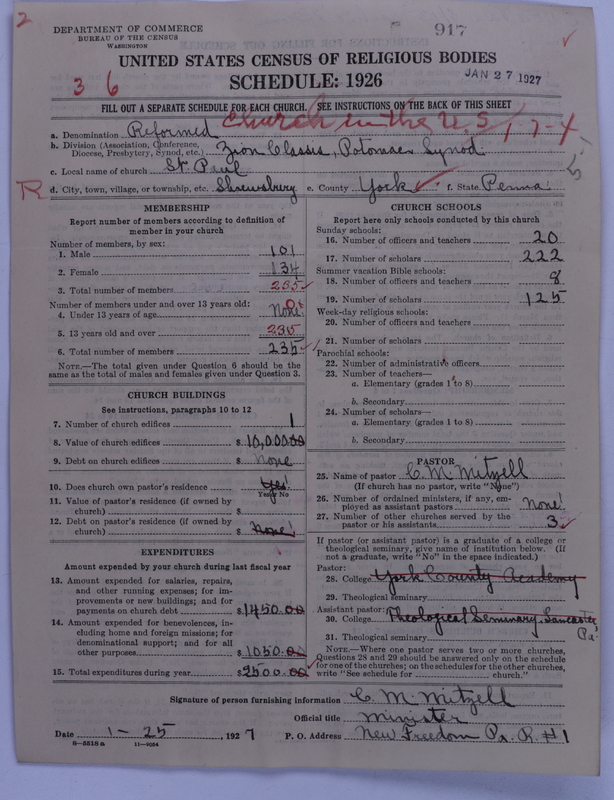 2
DEPARTMENT OF COMMERCE
BUREAU OF THE CENSUS
WASHINGTON
917
UNITED STATES CENSUS OF RELIGIOUS BODIES
SCHEDULE: 1926
JAN 27 1927
3 6
FILL OUT A SEPARATE SCHEDULE FOR EACH CHURCH. SEE INSTRUCTIONS ON THE BACK OF THIS SHEET
a. Denomination Reformed Church in the U.S. 17-4
b. Division (Association, Conference, Diocese, Presbytery, Synod, etc.) Zion Classis, Potomac Synod.
c. Local name of church St. Paul
R d. City, town, village, or township, etc. Shrewsbury e. County York f. State Penna.
MEMBERSHIP
Report number of members according to definition of member in your church
Number of members, by sex:
1. Male 101
2. Female 134
3. Total number of members 235
Number of members under and over 13 years old:
4. Under 13 years of age None! 0
5. 13 years old and over 235
6. Total number of members 235
NOTE.—The total given under Question 6 should be the same as the total of males and females given under Question 3.
CHURCH BUILDINGS
See instructions, paragraphs 10 to 12
7. Number of church edifices 1
8. Value of church edifices $ 10,000.00
9. Debt on church edifices $ None
10. Does church own pastor's residence Yes!
Yes or No
11. Value of pastor's residence (if owned by church) $
12. Debt on pastor's residence (if owned by church) $ None!
EXPENDITURES
Amount expended by your church during last fiscal year
13. Amount expended for salaries, repairs, and other running expenses; for improvements or new buildings; and for payments on church debt $ 1450.00
14. Amount expended for benevolences, including home and foreign missions; for denominational support; and for all other purposes $ 1050.00
15. Total expenditures during year $ 2500.00
CHURCH SCHOOLS
Report here only schools conducted by this church
Sunday schools:
16. Number of officers and teachers 20
17. Number of scholars 222
Summer vacation Bible schools:
18. Number of officers and teachers 8
19. Number of scholars 125
Week-day religious schools:
20. Number of officers and teachers
21. Number of scholars
Parochial schools:
22. Number of administrative officers
23. Number of teachers—
a. Elementary (grades 1 to 8)
b. Secondary
24. Number of scholars—
a. Elementary (grades 1 to 8)
b. Secondary
PASTOR
25. Name of pastor C. M. Mitzell
(If church has no pastor, write "None")
26. Number of ordained ministers, if any, employed as assistant pastors None!
27. Number of other churches served by the pastor or his assistants 3
If pastor (or assistant pastor) is a graduate of a college or theological seminary, give name of institution below. (If not a graduate, write "No" in the space indicated.)
Pastor:
28. College York County Academy
29. Theological seminary
Assistant pastor:
30. College Theological Seminary, Lancaster, Pa.
31. Theological seminary
NOTE.—Where one pastor serves two or more churches, Questions 28 and 29 should be answered only on the schedule for one of the churches; on the schedules for the other churches, write "See schedule for church."
Signature of person furnishing information C. M. Mitzell
Official title Minister
Date 1-25, 1927 P. O. Address New Freedom Pa. R #1
8-5518 a 11-9054